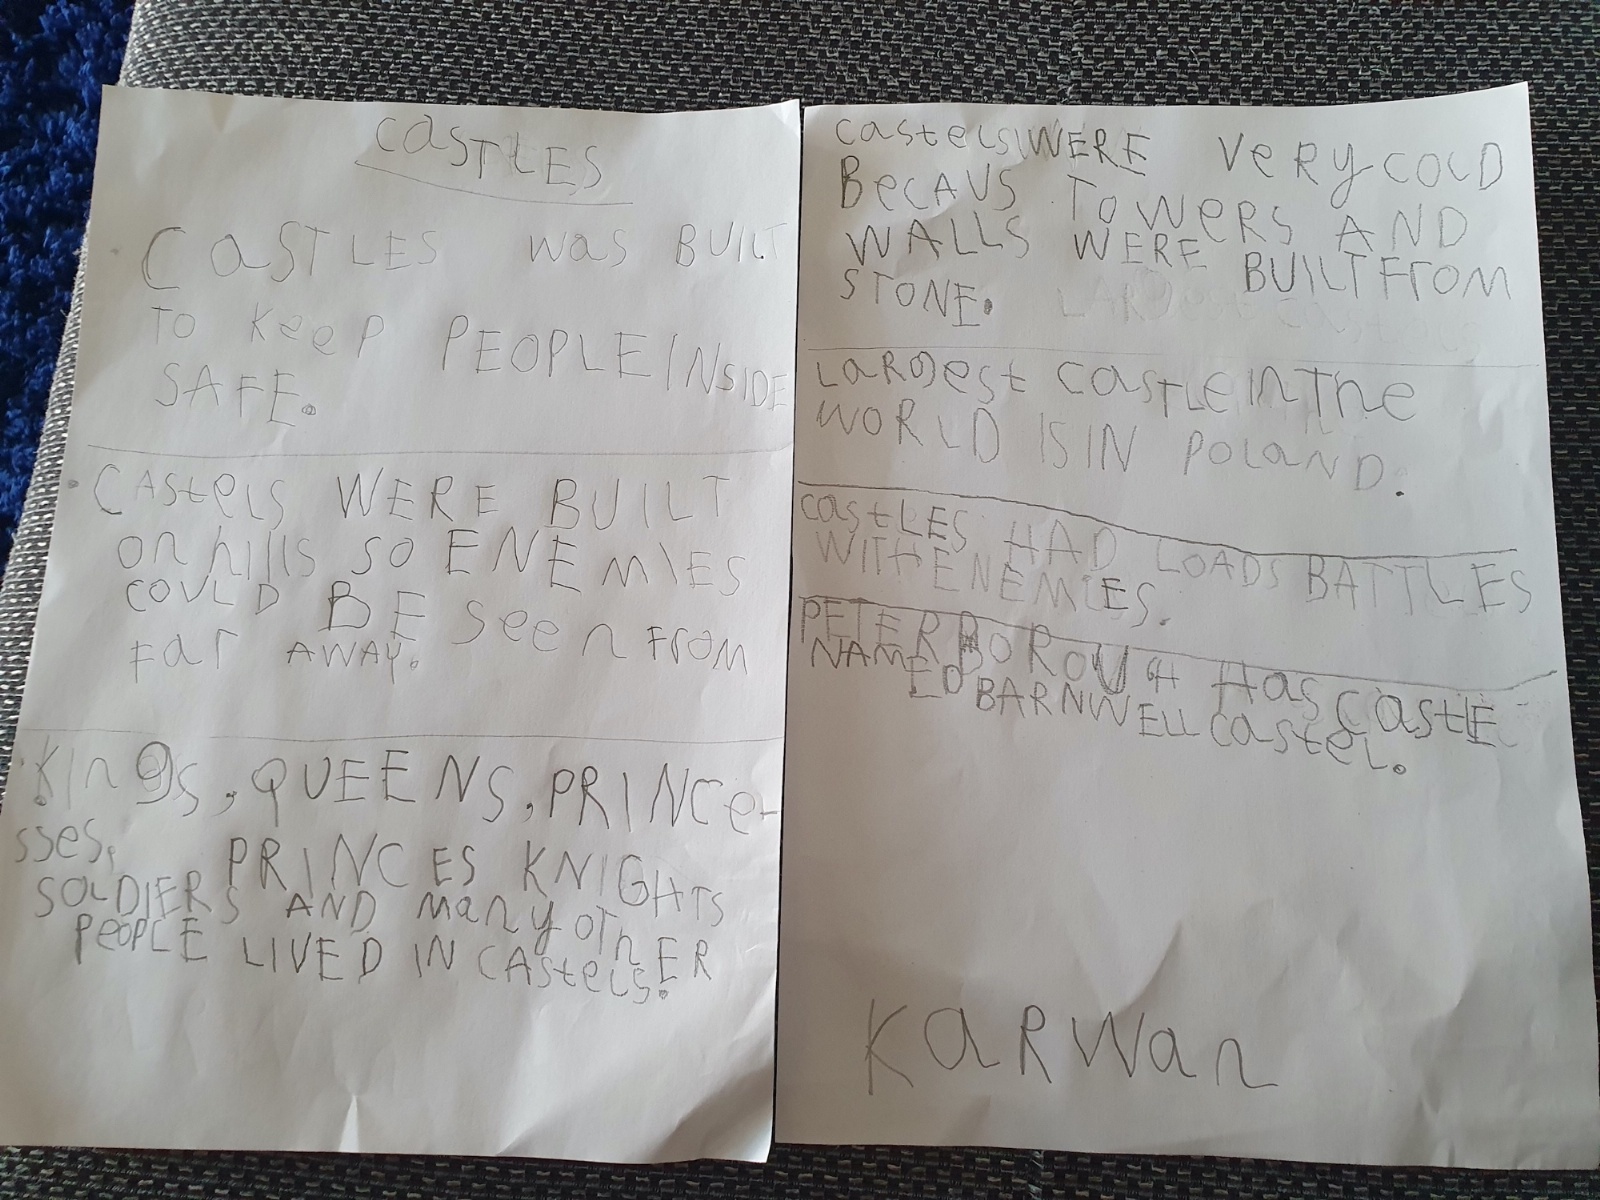 CaSTLES
CaSTLES was BUILT
To KeeP PEOPLE INSIDE
SAFE.
CAStelS WERE BUILT
on hills so ENEMIES
COULD BE seen FROM
Far AWAY.
KIngs, QUEENS, PRINCe-
sses, PRINCES KNIGHTS
SOLDIERS AND many oThER
PEOPLE LIVED IN CAStels.
CastelS WERE VeRy COLD
BeCAUS ToWeRS AND
WALLS WERE BUILT FroM
STONE.
LaRgest CaSTLe In The
WORLD IS IN PoLaND.
CastLES HAD LOADS BATTLES
WITH ENEMIES.
PETERBOROUGH Has CastLE
NAMED BARNWELL CasteL.
KaRWan